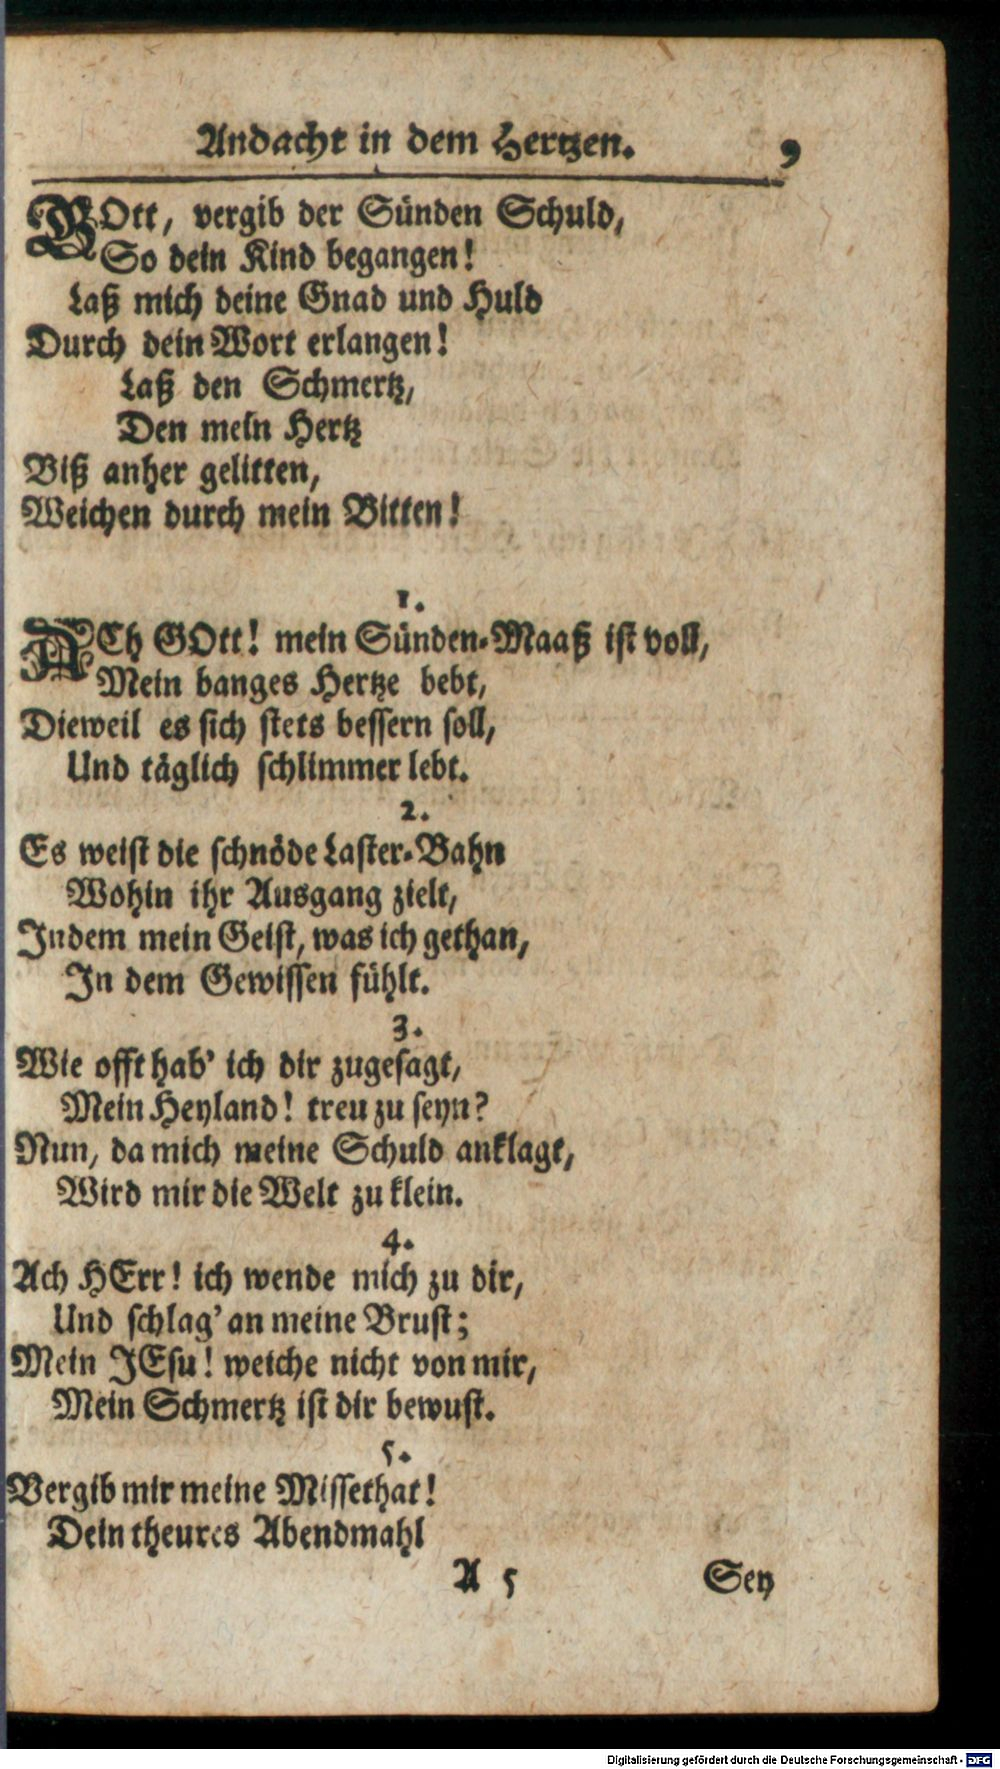 Andacht in dem Hertzen. 9
GOtt, vergib der Sünden Schuld,
So dein Kind begangen!
Laß mich deine Gnad und Huld
Durch dein Wort erlangen!
Laß den Schmertz,
Den mein Hertz
Biß anher gelitten,
Weichen durch mein Bitten!
1.
ACh GOtt! mein Sünden-Maaß ist voll,
Mein banges Hertze bebt,
Dieweil es sich stets bessern soll,
Und täglich schlimmer lebt.
2.
Es weist die schnöde Laster-Bahn
Wohin ihr Ausgang zielt,
Indem mein Geist, was ich gethan,
In dem Gewissen fühlt.
3.
Wie offt hab' ich dir zugesagt,
Mein Heyland! treu zu seyn?
Nun, da mich meine Schuld anklagt,
Wird mir die Welt zu klein.
4.
Ach HErr! ich wende mich zu dir,
Und schlag' an meine Brust;
Mein JEsu! weiche nicht von mir,
Mein Schmertz ist dir bewust.
5.
Vergib mir meine Missethat!
Dein theures Abendmahl
A 5 Sey
Digitalisierung gefördert durch die Deutsche Forschungsgemeinschaft - DFG